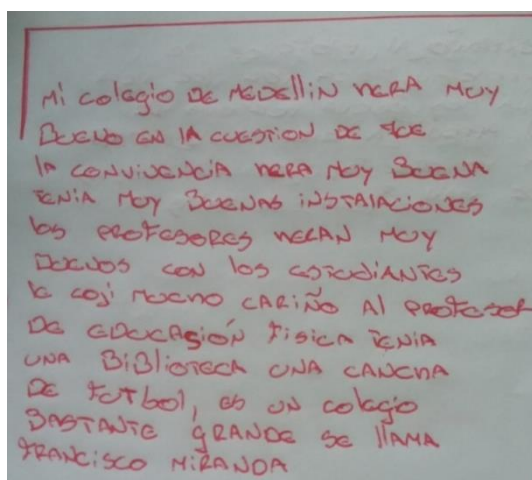 Mi colegio de Medellin hera muy
bueno en la cuestion de que
la convivencia hera muy buena
tenia muy buenas instalaciones
los profesores heran muy
buenos con los estudiantes
le coji mucho cariño al profesor
de educasión fisica tenia
una biblioteca una cancha
de futbol, es un colegio
bastante grande se llama
Francisco Miranda